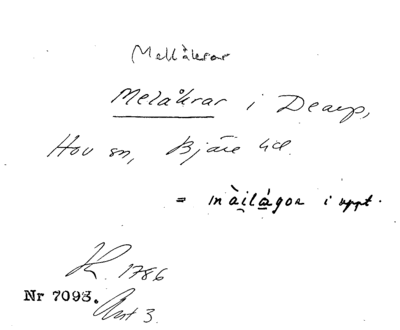 Mellåkrar
Melåkrar i Dearp,
Hov sn, Bjäre hd.
= màilágoa i uppt.
1786
Nr 7093. Ant 3.